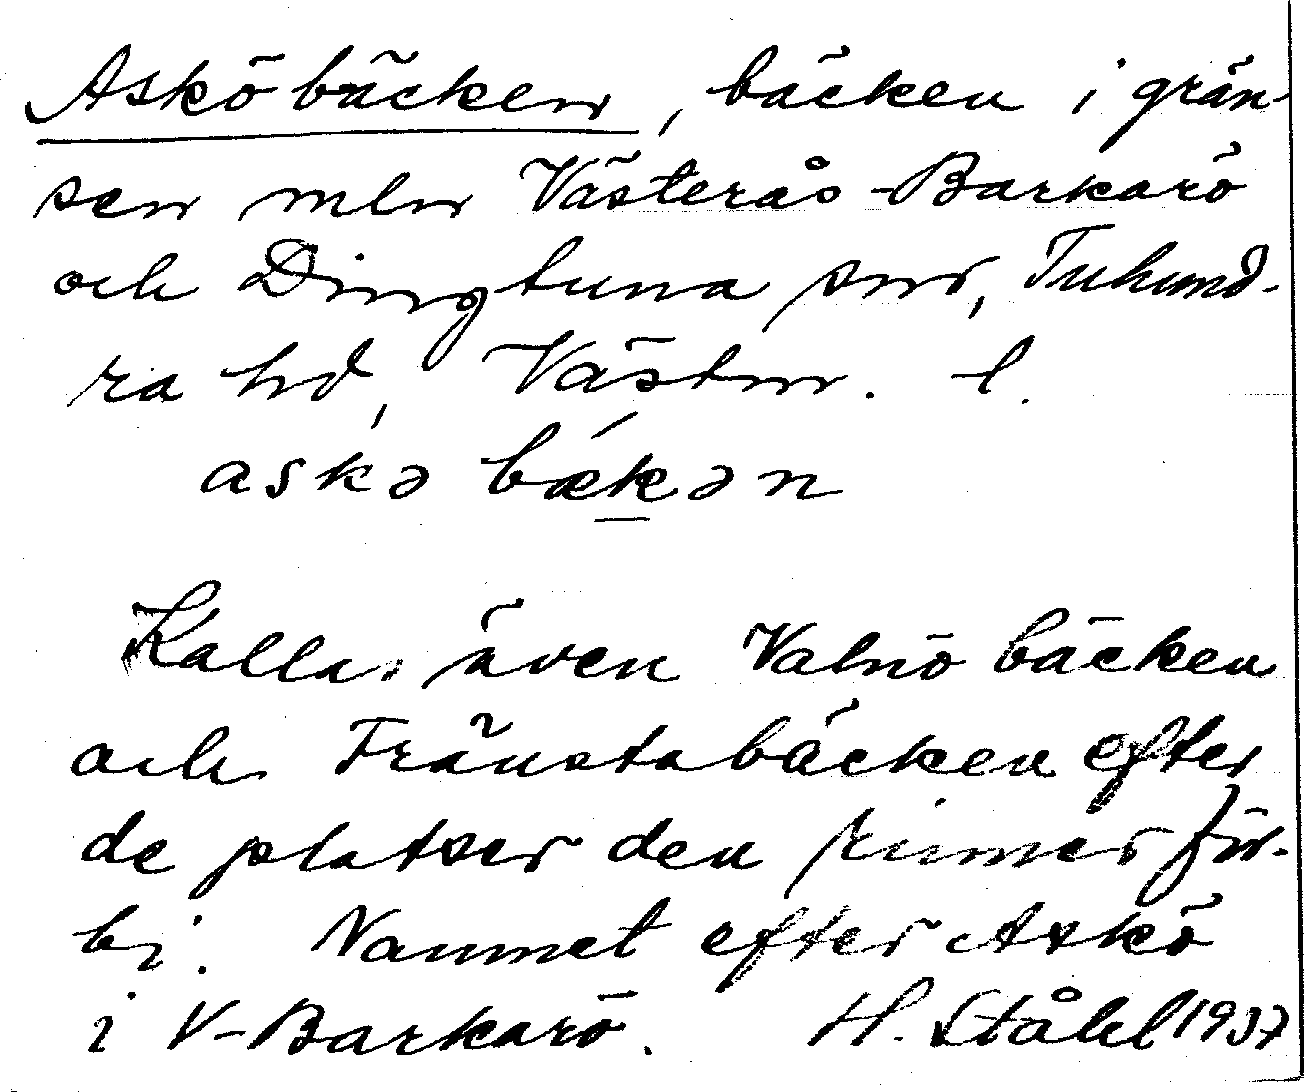 Asköbäcken, bäcken i grän-
sen mln Västerås-Barkarö
och Dingtuna snr, Tuhund-
ra hd, Västm. l.
askə bækən
Kallas även Valnöbäcken
och Fränstabäcken efter
de platser den rinner för-
bi. Namnet efter Askö
i V-Barkarö. H. Ståhl 1937